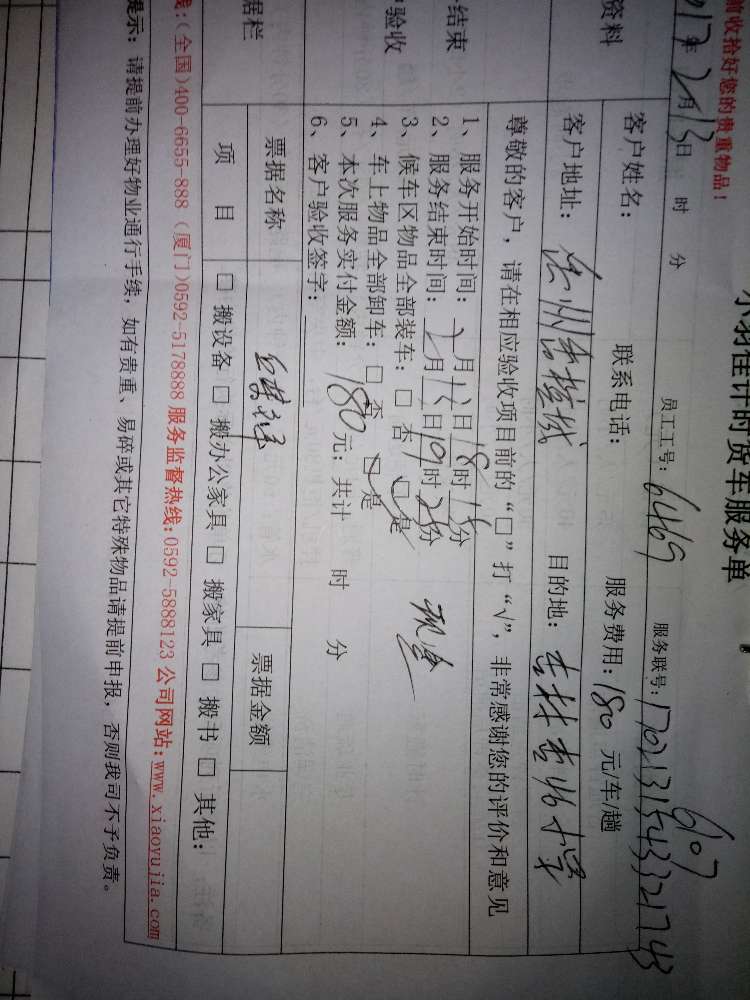 前收拾好您的贵重物品!
小羽佳计时货车服务单
017年2月13日 时 分 员工工号: 6469 服务联号: 1702131543321743
607
资料
客户姓名: 联系电话: 服务费用: 180 元/车/趟
客户地址: 目的地:
尊敬的客户, 请在相应验收项目前的“□”打“√”, 非常感谢您的评价和意见
结束
验收
1、服务开始时间: 2月13日18时15分
2、服务结束时间: 2月13日19时25分
3、候车区物品全部装车: □ 否 ☑是
4、车上物品全部卸车: □ 否 ☑是
现金
5、本次服务实付金额: 180元; 共计 时 分
6、客户验收签字:
据栏
票据名称 票据金额
项 目 □ 搬设备 □ 搬办公家具 □ 搬家具 □ 搬书 □ 其他:
线:(全国)400-6655-888 (厦门)0592-5178888 服务监督热线:0592-5888123 公司网站:www.xiaoyujia.com
提示: 请提前办理好物业通行手续, 如有贵重、易碎或其它特殊物品请提前申报, 否则我司不予负责。